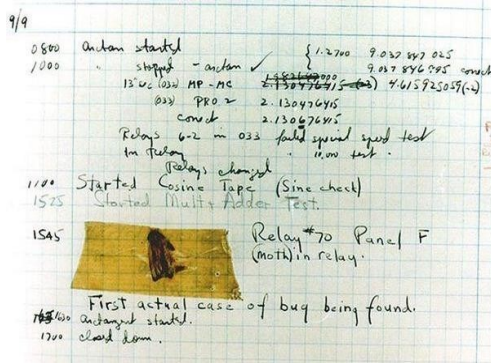 9/9
0800 Antan started
1000 " stopped - antan ✓ { 1.2700 9.037 847 025
9.037 846 995 correct
13"uc (032) MP-MC 2.130476415 4.615925059(-2)
(033) PRO 2 2.130476415
correct 2.130676415
Relays 6-2 in 033 failed special speed test
in Relay " 10.000 test.
Relays changed
1100 Started Cosine Tape (Sine check)
1525 Started Mult + Adder Test.
1545 Relay #70 Panel F
(moth) in relay.
First actual case of bug being found.
1630 antangent started.
1700 closed down.